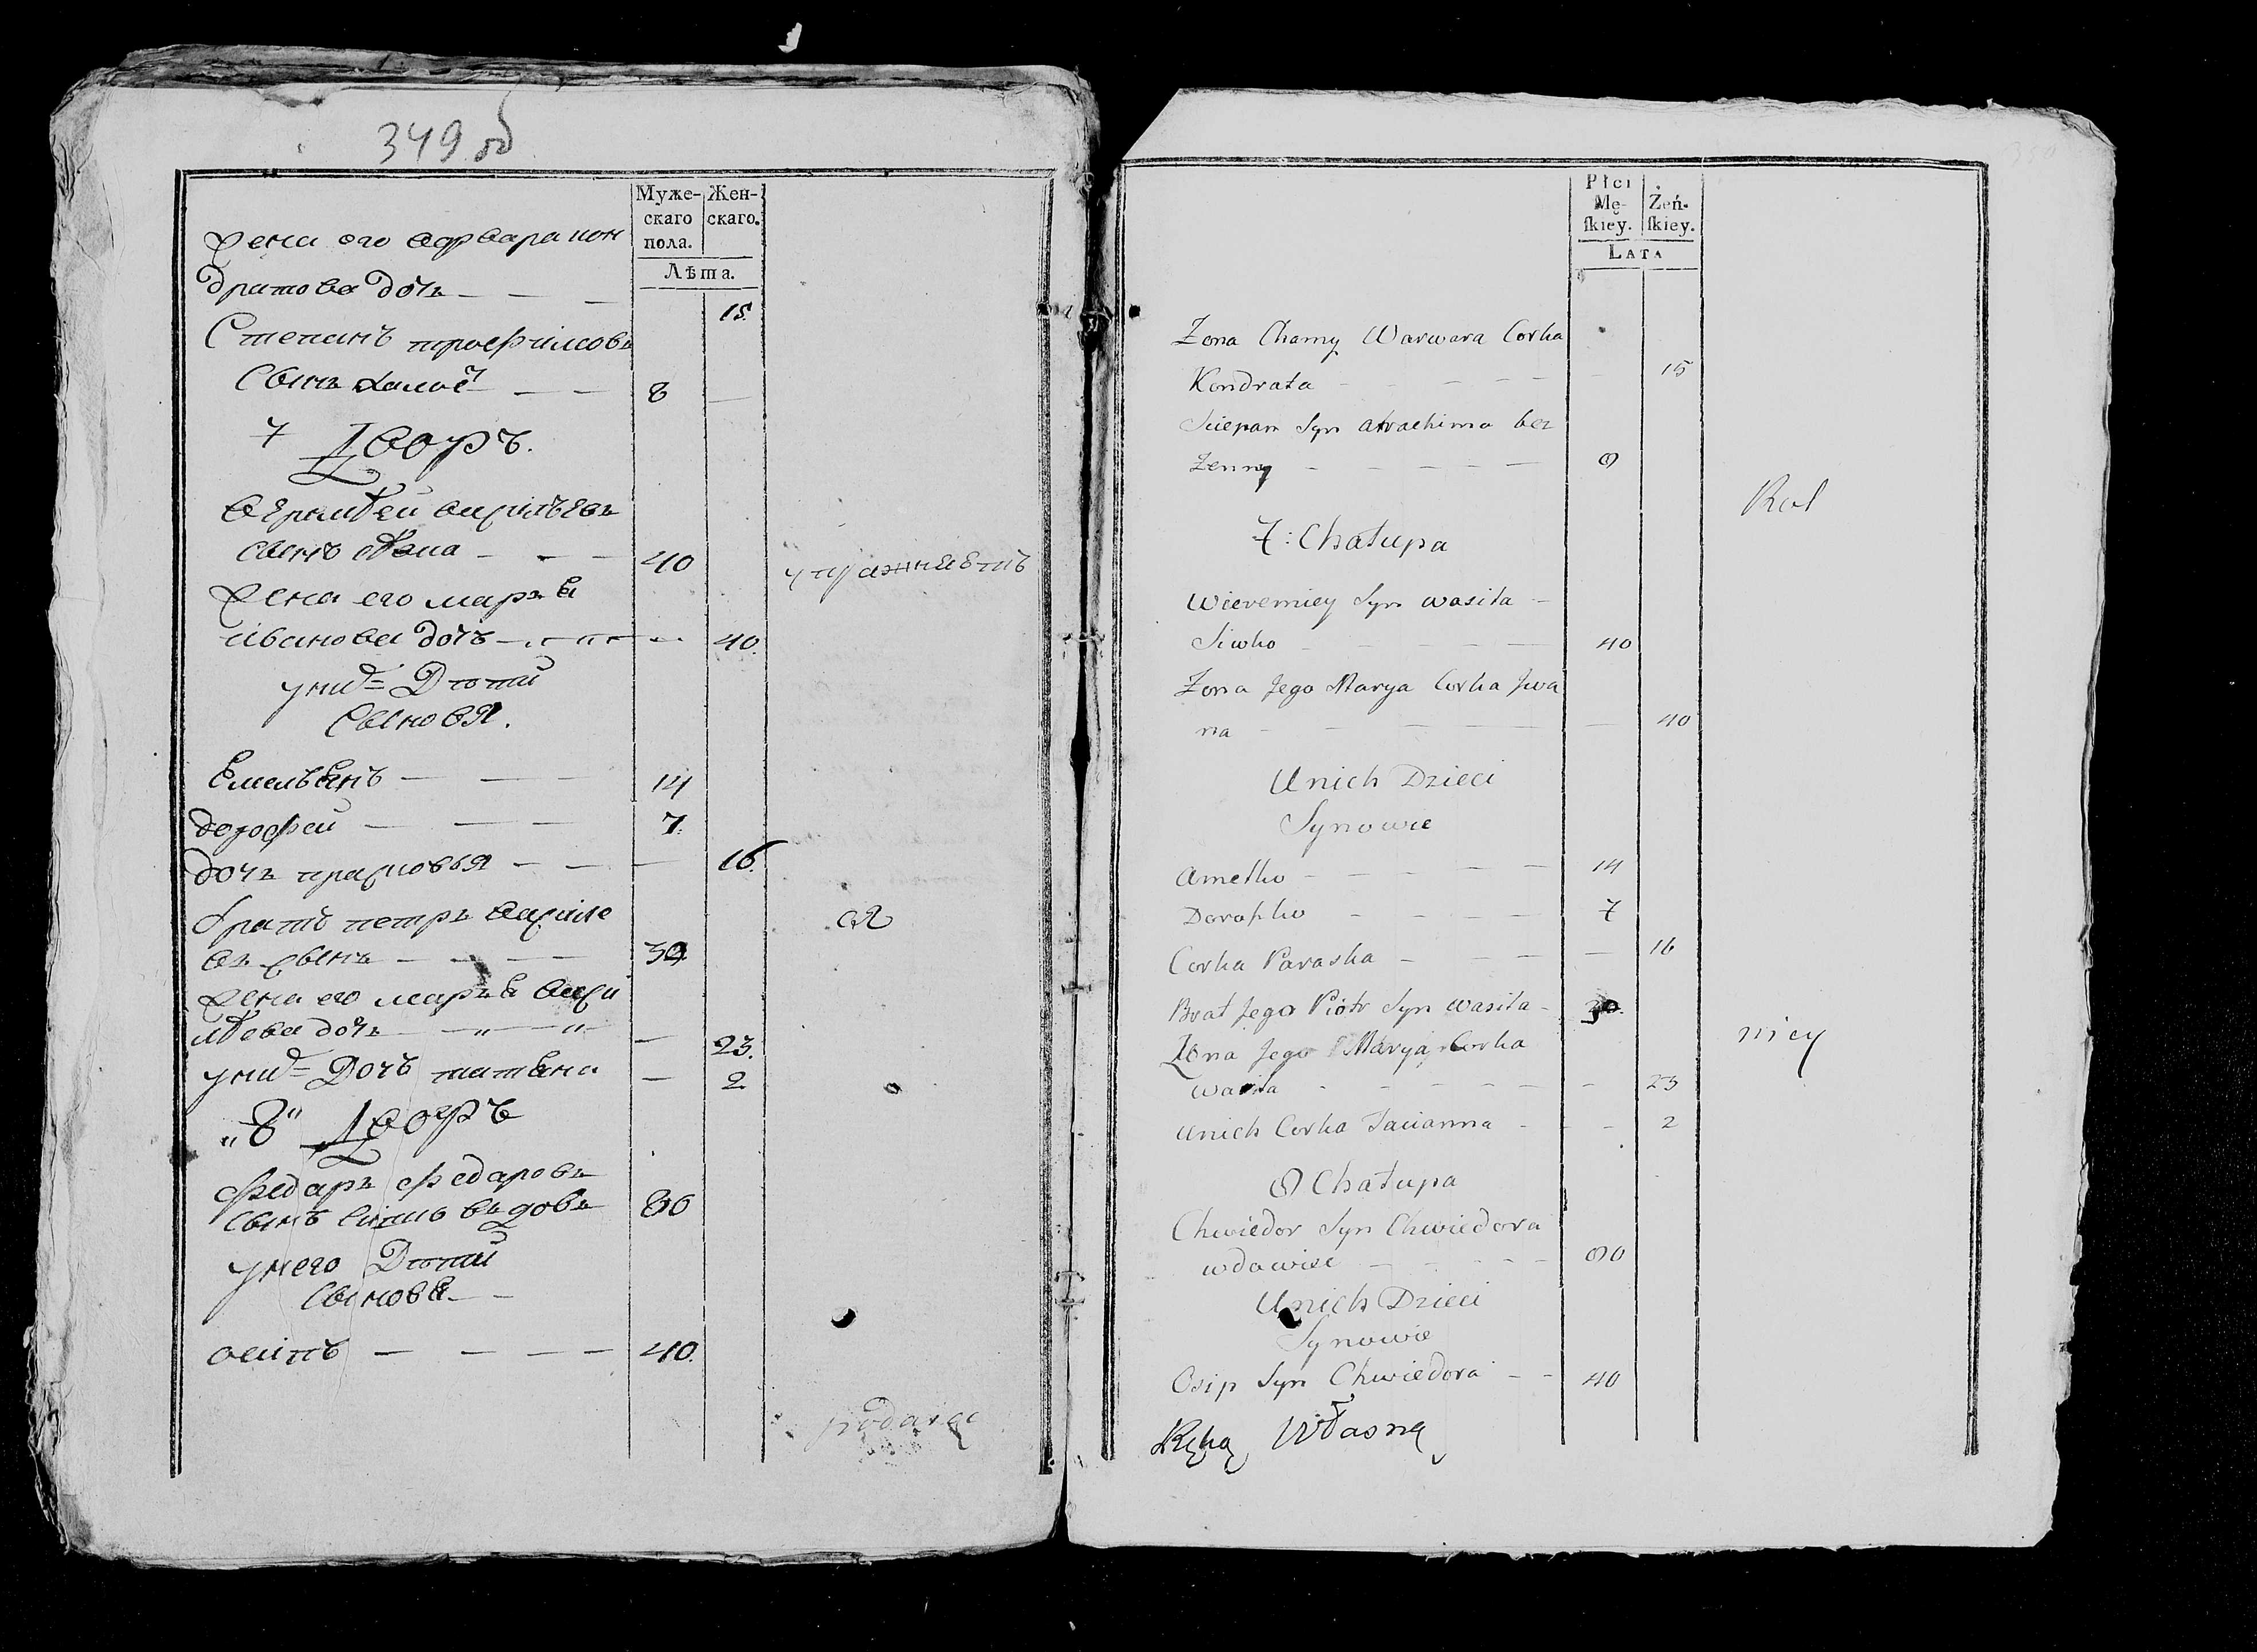 349 об
Муже-
скаго
пола.
Жен-
скаго.
Лѣта.
Жена его варвара кон
дратова дочь — — — 15.
Степанъ трофимовъ
сынъ холостъ — — 8 —
7 Дворъ.
сынъ — — — 40
Жена его марья
иванова дочь — 40.
у них Дѣти
Сыновя.
Емельянъ — — — 14
дорофей — — — 7.
дочь прасковья — — — 16.
братъ петръ василе
въ сынъ — — —
Жена его марья васи
дочь — „ — „ — 23.
у них Дочь татьяна — 2
„8" Дворъ
федаръ федаровъ
сынъ вдовъ 80
у него Дѣти
Сыновя — —
осипъ — — — — 40.
Płci
Mę-
ſkiey.
Żeń-
ſkiey.
LATA
Zona Chamy Warwara Corka
Kondrata — — — — — 15
Sciepan Syn atrachima bez
Zenny — — — — — 8
7: Chałupa
Wieremiey Syn wasila —
Siwko — — — — — 40
Zona Jego Marya Corka Jwa
na — — — — — — 40
Unich Dzieci
Synowie
Amelko — — — — — 14
Doropko — — — — 7
Corka Paraska — — — — — 16
Brat Jego Piotr Syn wasila — 30.
Zona Jego Marya Corka
wasila — — — — — — 23
Unich Corka Tacianna — — — 2
8 Chałupa
Chwiedor Syn Chwiedora
wdowiec — — — — 80
Unich Dzieci
Synowie
Osip Syn Chwiedora — — 40
Ręką Własną
Rol
niey